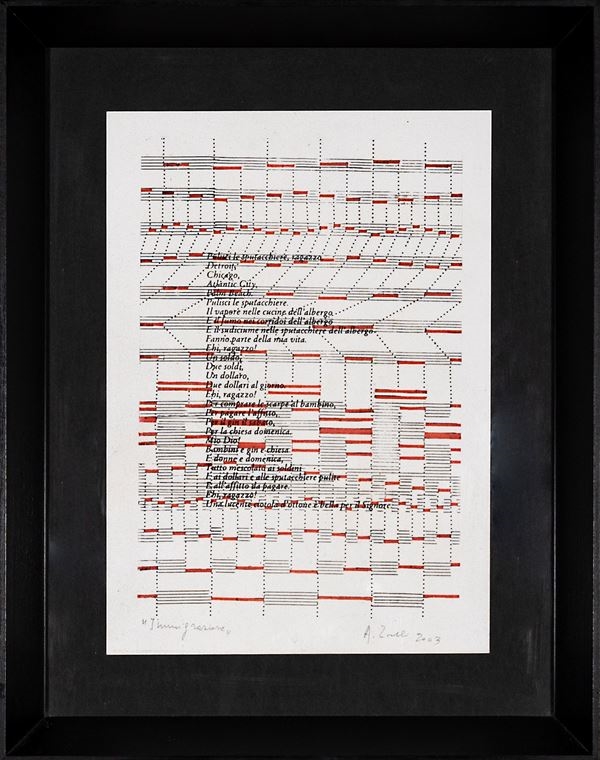 Pulisci le sputacchiere, ragazzo.
Detroit,
Chicago,
Atlantic City,
Palm Beach.
Pulisci le sputacchiere.
Il vapore nelle cucine dell'albergo
E il fumo nei corridoi dell'albergo
E il sudiciume nelle sputacchiere dell'albergo
Fanno parte della mia vita.
Ehi, ragazzo!
Un soldo,
Due soldi,
Un dollaro,
Due dollari al giorno.
Ehi, ragazzo!
Per comprare le scarpe al bambino,
Per pagare l'affitto,
Per il gin il sabato,
Per la chiesa domenica.
Mio Dio!
Bambini e gin e chiesa
E donne e domenica,
Tutto mescolato ai soldini
E ai dollari e alle sputacchiere pulite
E all'affitto da pagare.
Ehi, ragazzo!
Una lucente ciotola d'ottone è bella per il Signore.
"Immigrazione"
A. 2003